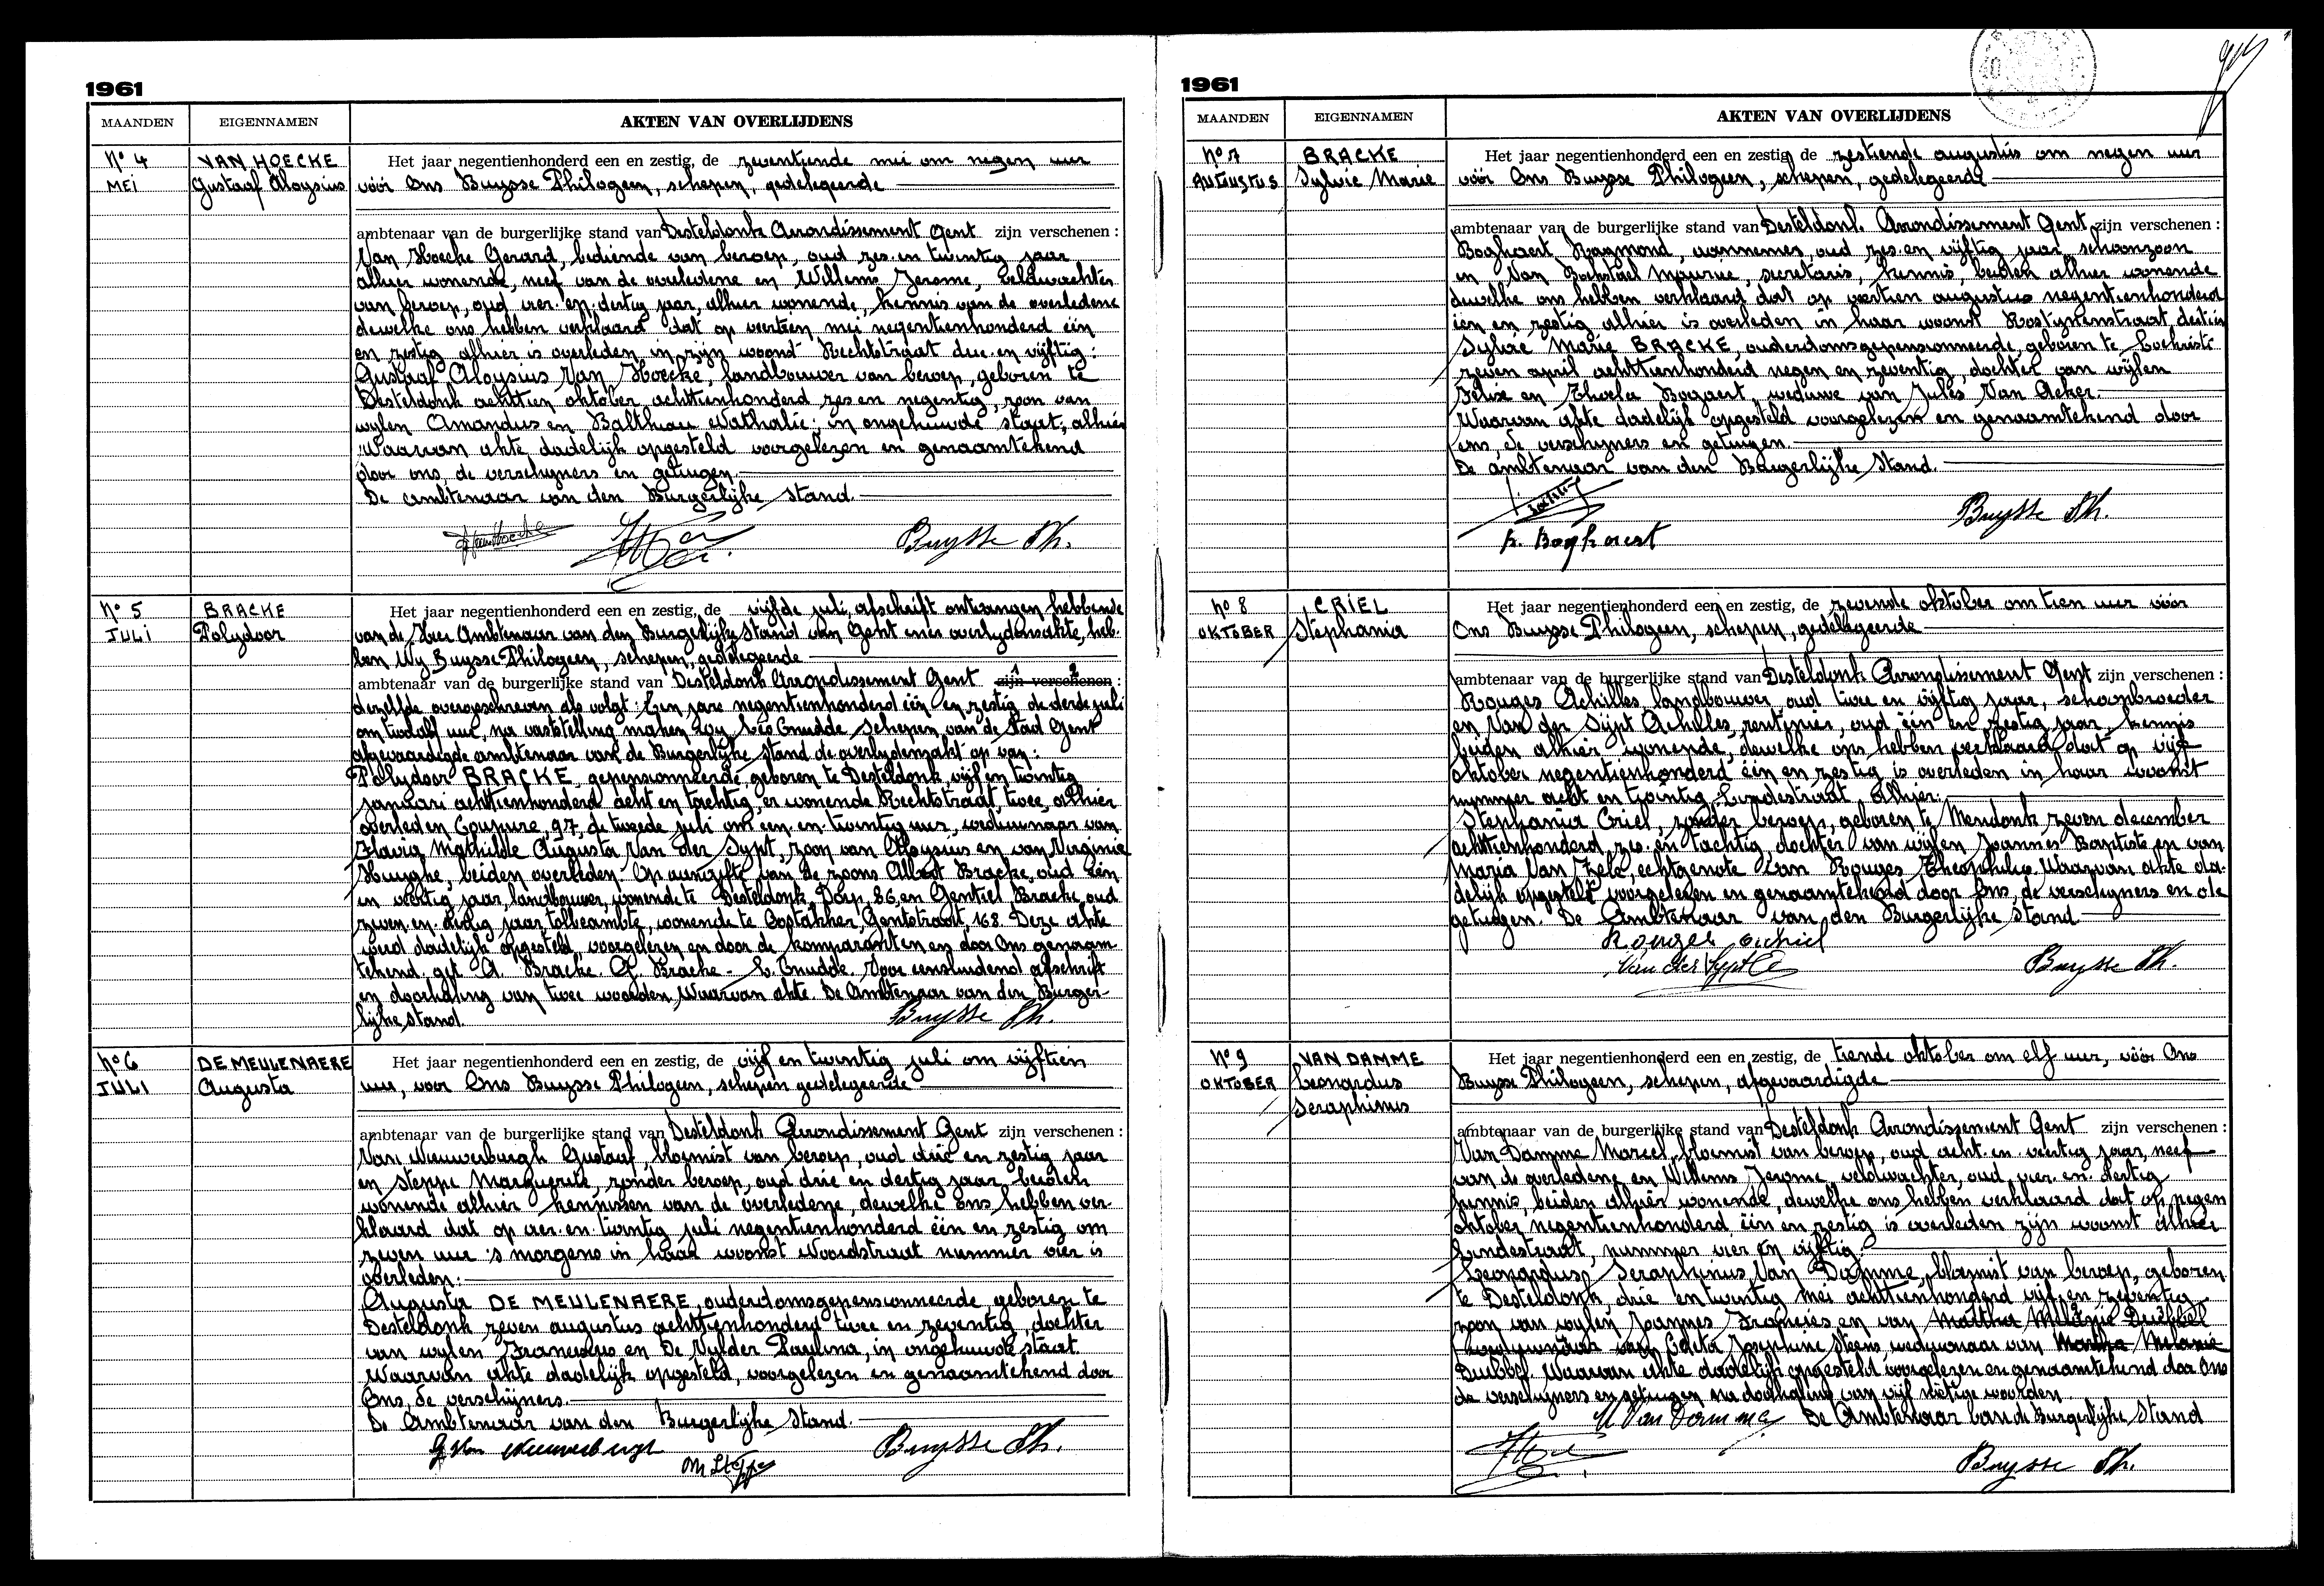 1961
MAANDEN EIGENNAMEN AKTEN VAN OVERLIJDENS
No 4 VAN HOECKE Het jaar negentienhonderd een en zestig, de zeventiende mei om negen uur
MEI Gustaaf Aloysius vóór Ons Buysse Philogeen, schepen, gedelegeerde
ambtenaar van de burgerlijke stand van Desteldonk Arrondissement Gent zijn verschenen :
Van Hoecke Gerard, bediende van beroep, oud zes en twintig jaar
alhier wonende, neef van de overledene en Willems Jerome, veldwachter
van beroep, oud vier en dertig jaar, alhier wonende, kennis van de overledene
dewelke ons hebben verklaard dat op veertien mei negentienhonderd één
en zestig alhier is overleden in zijn woonst Rechtstraat drie en vijftig:
Gustaaf Aloysius Van Hoecke, landbouwer van beroep, geboren te
Desteldonk achttien oktober achttienhonderd zes en negentig, zoon van
wylen Amandus en Balthiau Nathalie; in ongehuwde staat; alhier
Waarvan akte dadelijk opgesteld voorgelezen en genaamtekend
door ons, de verschyners en getuigen.
De ambtenaar van den Burgerlijke stand.
Buysse Ph.
No 5 BRACKE Het jaar negentienhonderd een en zestig, de vijfde juli, afschrift ontvangen hebbende
JULI Polydoor van de Heer Ambtenaar van den Burgerlijke stand van Gent ener overlydensakte, heb-
ben Wy Buysse Philogeen, schepen, gedelegeerde
ambtenaar van de burgerlijke stand van Desteldonk Arrondissement Gent zijn verschenen :
dezelfde overgeschreven als volgt: Een jare negentienhonderd één en zestig de derde juli
om twaalf uur, na vaststelling maken Wy Leo Cnudde schepen van de stad Gent
afgevaardigde ambtenaar van de Burgerlijke stand de overlydensakt op van:
Polydoor BRACKE, gepensionneerde, geboren te Desteldonk, vijf en twintig
januari achttienhonderd acht en tachtig, er wonende Rechtstraat, twee, alhier
overleden Coupure, 97, de tweede juli om een en twintig uur, weduwnaar van
Flavia Mathilde Augusta Van der Sypt, zoon van Aloysius en van Virginie
Huyghe, beiden overleden. Op aangifte van de zoons Albert Bracke, oud één
en veertig jaar, landbouwer, wonende te Desteldonk, Dorp, 86, en Gentiel Bracke, oud
zeven en dertig jaar tolbeambte, wonende te Oostakker, Gentstraat, 168. Deze akte
werd dadelijk opgesteld, voorgelezen en door de komparanten en door Ons genaam
tekend. get. A. Bracke. G. Bracke - L. Cnudde. Voor eensluidend afschrift
en doorhaling van twee woorden, Waarvan akte. De Ambtenaar van den Burger-
lijke stand. Buysse Ph.
No 6 DE MEULENAERE Het jaar negentienhonderd een en zestig, de vijf en twintig juli om vijftien
JULI Augusta uur, voor Ons Buysse Philogeen, schepen gedelegeerde
ambtenaar van de burgerlijke stand van Desteldonk Arrondissement Gent zijn verschenen :
Van Nieuwerburgh Gustaaf, bloemist van beroep, oud drie en zestig jaar
en Steppe Marguerite, zonder beroep, oud drie en dertig jaar, beiden
wonende alhier kennissen van de overledene, dewelke Ons hebben ver-
klaard dat op vier en twintig juli negentienhonderd één en zestig om
zeven uur 's morgens in haar woonst Noordstraat nummer vier is
overleden:
Augusta DE MEULENAERE, ouderdomsgepensionneerde, geboren te
Desteldonk zeven augustus achttienhonderd twee en zeventig, dochter
van wylen Franciscus en De Vylder Paulina, in ongehuwde staat.
Waarvan akte dadelijk opgesteld, voorgelezen en genaamtekend door
Ons, de verschijners.
De Ambtenaar van den Burgerlijke Stand.
G. Van Nieuwerburgh M Steppe Buysse Ph.
1961
MAANDEN EIGENNAMEN AKTEN VAN OVERLIJDENS
No 7 BRACKE Het jaar negentienhonderd een en zestig, de zestiende augustus om negen uur
AUGUSTUS Sylvie Marie vóór Ons Buysse Philogeen, schepen, gedelegeerde
ambtenaar van de burgerlijke stand van Desteldonk Arrondissement Gent zijn verschenen :
Boghaert Raymond, aannemer, oud zes en vijftig jaar, schoonzoon
en Van Bockstael Maurice, secretaris, kennis, beiden alhier wonende
dewelke ons hebben verklaard dat op veertien augustus negentienhonderd
één en zestig alhier is overleden in haar woonst Rostynenstraat, dertien
Sylvie Marie BRACKE, ouderdomsgepensionneerde, geboren te Lochristi
zeven april achttienhonderd negen en zeventig, dochter van wijlen
Felix en Thecla Bogaert, weduwe van Jules Van Acker.
Waarvan akte dadelijk opgesteld voorgelezen en genaamtekend door
ons, de verschyners en getuigen.
De ambtenaar van den Burgerlijke Stand.
R. Boghaert Buysse Ph.
No 8 CRIEL Het jaar negentienhonderd een en zestig, de zevende oktober om tien uur vóór
OKTOBER Stephania Ons Buysse Philogeen, schepen, gedelegeerde
ambtenaar van de burgerlijke stand van Desteldonk Arrondissement Gent zijn verschenen :
Rouges Achilles, landbouwer, oud twee en vijftig jaar, schoonbroeder
en Van der Sijpt Achilles, rentenier, oud één en zestig jaar, kennis
beiden alhier wonende, dewelke ons hebben verklaard dat op vijf
oktober negentienhonderd één en zestig is overleden in haar woonst
nummer acht en twintig Lindestraat Alhier:
Stephania Criel, zonder beroep, geboren te Mendonk zeven december
achttienhonderd zes en tachtig, dochter van wijlen Joannes Baptiste en van
Maria Van Zele, echtgenote van Rouges Theophilus. Waarvan akte da-
delijk opgesteld voorgelezen en genaamtekend door Ons, de verschyners en de
getuigen. De Ambtenaar van den Burgerlijke Stand
Rouges Achiel
Van der Sypt A Buysse Ph.
No 9 VAN DAMME Het jaar negentienhonderd een en zestig, de tiende oktober om elf uur, vóór Ons
OKTOBER Leonardus Buysse Philogeen, schepen, afgevaardigde
Seraphinus
ambtenaar van de burgerlijke stand van Desteldonk Arrondissement Gent zijn verschenen :
Van Damme Marcel, bloemist van beroep, oud acht en veertig jaar, neef
van de overledene en Willems Jerome, veldwachter, oud vier en dertig
kennis, beiden alhier wonende, dewelke ons hebben verklaard dat op negen
oktober negentienhonderd één en zestig is overleden zijn woonst alhier
Lindestraat, nummer vier en vijftig:
Leonardus Seraphinus Van Damme, bloemist van beroep, geboren
te Desteldonk, drie en twintig mei achttienhonderd vijf en zeventig
zoon van wylen Joannes Francies en van Martha Melanie Dubbel
van Coleta Josephine Steens, weduwnaar van Martha Melanie
Dubbel. Waarvan akte dadelijk opgesteld voorgelezen en genaamtekend door Ons
de verschyners en getuigen na doorhaling van vijf nietige woorden
M Van Damme De Ambtenaar van de Burgerlijke Stand
Buysse Ph.